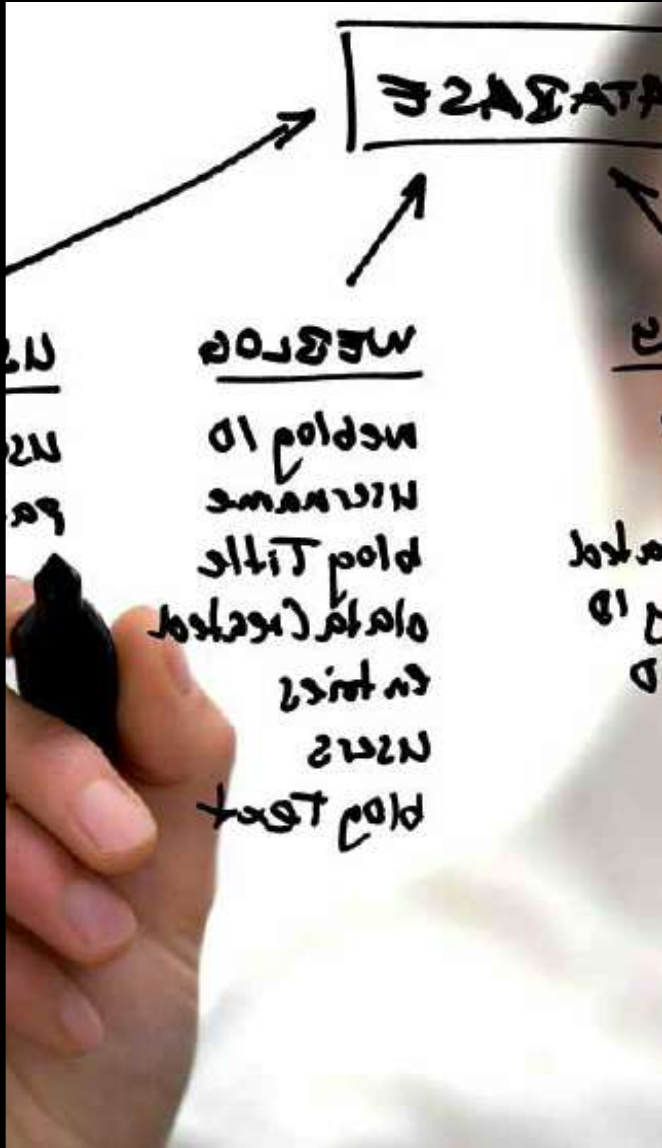 ATABASE
WEBLOG
weblog ID
username
blog Title
dataCreated
entries
users
blog Text
US
use
pas
ated
g ID
D